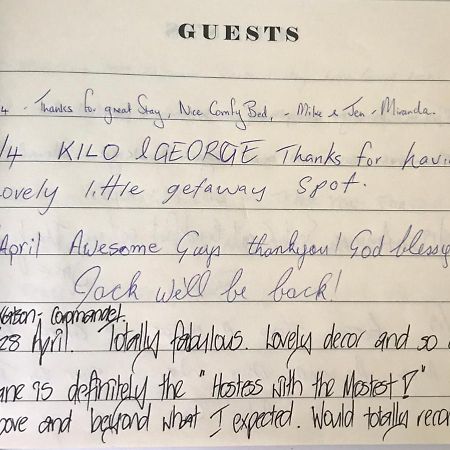 GUESTS
4 - Thanks for great Stay, Nice Comfy Bed, - Mike & Jen - Miranda.
/4 KILO & GEORGE Thanks for havi
ovely little getaway spot.
April Awesome Guys thankyou! God blessi
Jack we'll be back!
Coromandel.
28 April. Totally fabulous. Lovely decor and so
ane is definitely the "Hostess with the Mostest!"
ove and beyond what I expected. Would totally reco